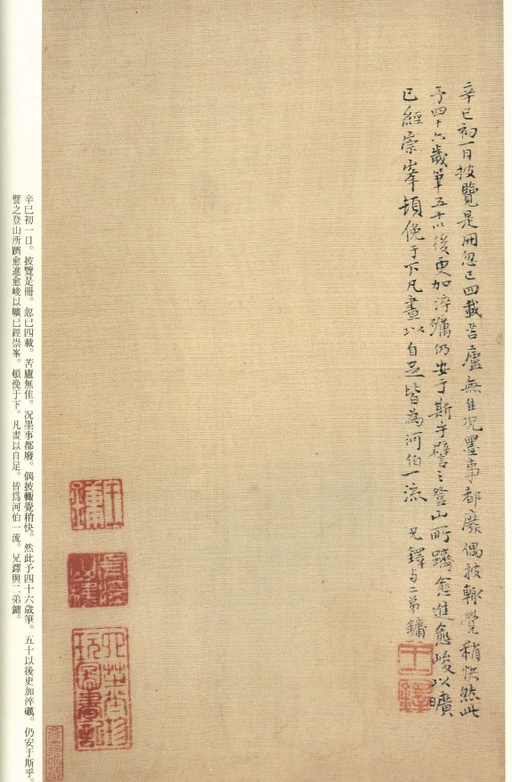 辛巳初一日披覽是冊忽已四載苦廬無隹况墨事都廢偶披輙覺稍快然此
予四十六歲筆五十以後更加淬礪仍安于斯乎譬之登山所躋愈進愈峻以曠
已經崇峯頓俛于下凡畫以自足皆為河伯一流 兄鐸與二弟鏞
王鐸
辛巳初一日。披覽是冊。忽已四載。苦廬無隹。况墨事都廢。偶披輙覺稍快。然此予四十六歲筆。五十以後更加淬礪。仍安于斯乎。
譬之登山所躋愈進愈峻以曠已經崇峯。頓俛于下。凡畫以自足。皆爲河伯一流。兄鐸與二弟鏞。